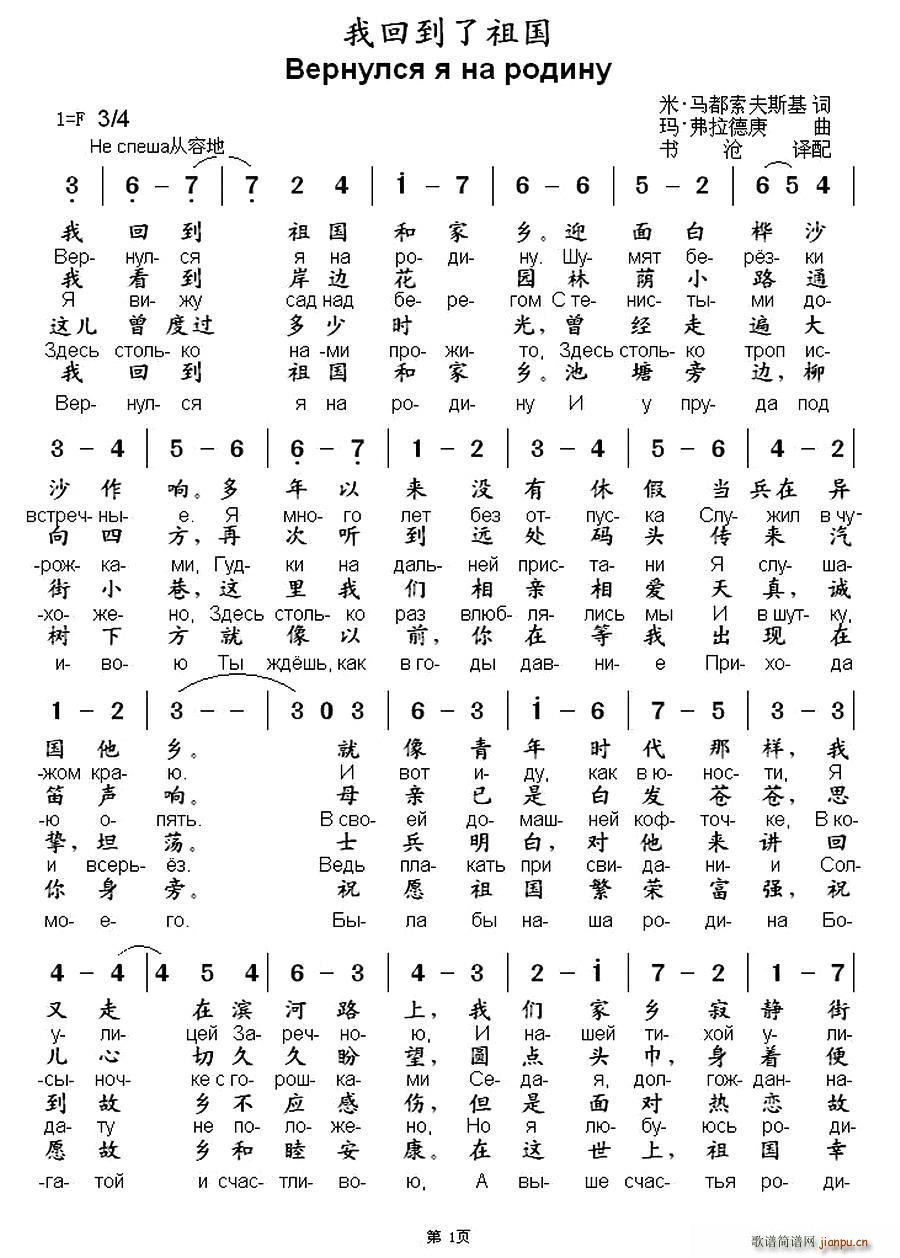 我回到了祖国
Вернулся я на родину
1=F 3/4
Не спеша从容地
米·马都索夫斯基 词
玛·弗拉德庚 曲
书沧 译配
3 | 6 – 7 | 7 2 4 | i – 7 | 6 – 6 | 5 – 2 | 6 5 4 |
我 回 到 祖 国 和 家 乡。迎 面 白 桦 沙
Вер- нул- ся я на ро- ди- ну. Шу- мят бе- рёз- ки
我 看 到 岸 边 花 园 林 荫 小 路 通
Я ви- жу сад над бе- ре- гом С те- нис- ты- ми до-
这儿 曾 度过 多 少 时 光，曾 经 走 遍 大
Здесь столь- ко на -ми про- жи- то, Здесь столь- ко троп ис-
我 回 到 祖 国 和 家 乡。池 塘 旁 边，柳
Вер- нул- ся я на ро- ди- ну И у пру- да под
3 – 4 | 5 – 6 | 6 – 7 | 1 – 2 | 3 – 4 | 5 – 6 | 4 – 2 |
沙 作 响。多 年 以 来 没 有 休 假 当 兵在 异
встреч- ны- е. Я мно- го лет без от- пус- ка Слу- жил в чу-
向 四 方，再 次 听 到 远 处 码 头 传 来 汽
-рож- ка- ми, Гуд- ки на даль- ней прис- та- ни Я слу- ша-
街 小 巷，这 里 我 们 相 亲 相 爱 天 真，诚
-хо- же- но, Здесь столь- ко раз влюб- ля- лись мы И в шут- ку,
树 下 方 就 像 以 前，你 在 等 我 出 现 在
и- во- ю Ты ждёшь, как в го- ды дав- ни- е При- хо- да
1 – 2 | 3 – – | 3 0 3 | 6 – 3 | i – 6 | 7 – 5 | 3 – 3 |
国 他 乡。 就 像 青 年 时 代 那 样，我
-жом кра- ю. И вот и- ду, как в ю- нос- ти, Я
笛 声 响。 母 亲 已 是 白 发 苍 苍，思
-ю о- пять. В сво- ей до- маш- ней коф- точ- ке, В ко-
挚，坦 荡。 士 兵 明 白，对 他 来 讲 回
и всерь- ёз. Ведь пла- кать при сви- да- ни- и Сол-
你 身 旁。 祝 愿 祖 国 繁 荣 富 强，祝
мо- е- го. Бы- ла бы на- ша ро- ди- на Бо-
4 – 4 | 4 5 4 | 6 – 3 | 4 – 3 | 2 – i | 7 – 2 | 1 – 7 |
又 走 在 滨 河 路 上，我 们 家 乡 寂 静 街
у- ли- цей За- реч- но- ю, И на- шей ти- хой у- ли-
儿 心 切 久 久 盼 望，圆 点 头 巾，身 着 便
-сы- ноч- ке с го- рош- ка- ми Се- да- я, дол- гож- дан- на-
到 故 乡 不 应 感 伤，但 是 面 对 热 恋 故
да- ту не по- ло- же- но, Но я лю- бу- юсь ро- ди-
愿 故 乡 和 睦 安 康。在 这 世 上，祖 国 幸
-га- той и счас- тли- во- ю, А вы- ше счас- тья ро- ди-
第 1页
歌谱简谱网
jianpu.cn